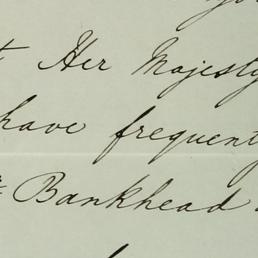 Her Majesty
have frequent
Bankhead